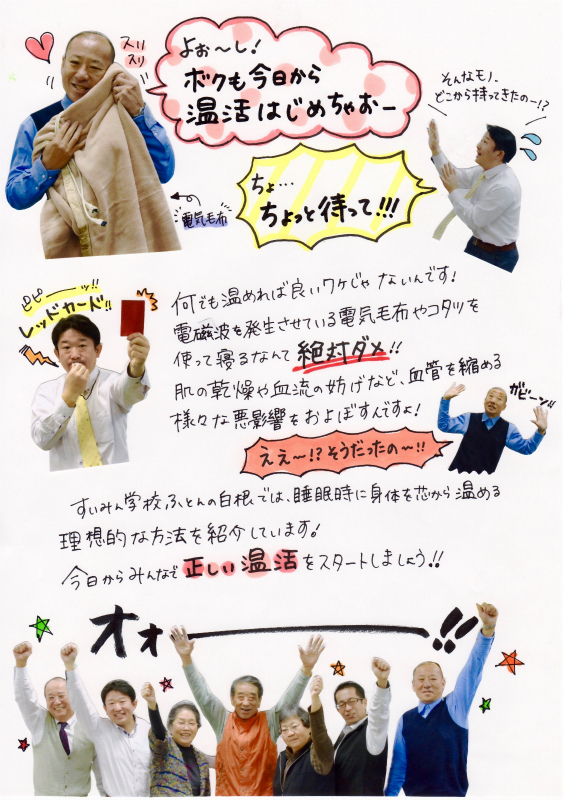 スリ
スリ
よぉ〜し!
ボクも今日から
温活はじめちゃおー
そんなモノ、
どこから持ってきたのー!?
ちょ…
ちょっと待って!!!
電気毛布
ピピーーッ!!
レッドカード!!
何でも温めれば良いワケじゃないんです!
電磁波を発生させている電気毛布やコタツを
使って寝るなんて絶対ダメ!!
肌の乾燥や血流の妨げなど、血管を縮める
様々な悪影響をおよぼすんですよ!
ガビーン!!
ええ〜!?そうだったの〜!!
すいみん学校ふとんの白根では、睡眠時に身体を芯から温める
理想的な方法を紹介しています!
今日からみんなで正しい温活をスタートしましょう!!
オォー!!